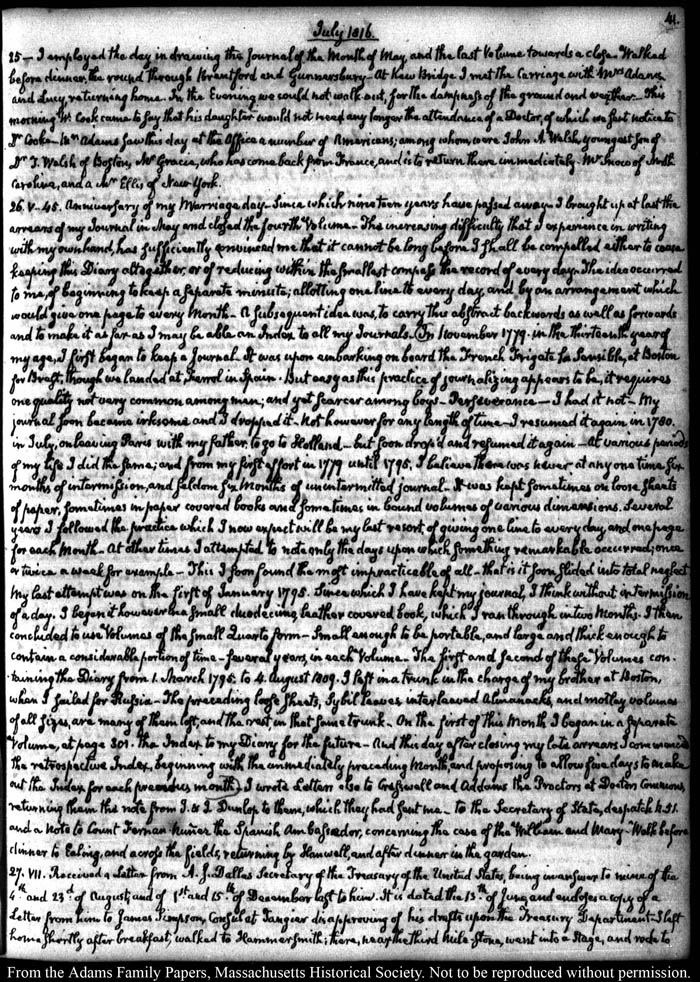 41.
July 1816.
25 — I employed the day in drawing the Journal of the Month of May, and the last Volume towards a close. Walked
before dinner, the round through Brentford and Gunnersbury — At Kew Bridge I met the Carriage with Mrs Adams,
and Lucy returning home. In the Evening we could not walk out, for the dampness of the ground and weather — This
morning Mr Cook came to say that his daughter would not need any longer the attendance of a Doctor, of which we sent notice to
Dr Cooke — Mrs Adams saw this day at the Office a number of Americans; among whom were John A. Welsh, youngest son of
Dr T. Welsh of Boston, Mr Gracie, who has come back from France, and is to return there immediately. Mr of North
Carolina, and a Mr Ellis of New York.
26. V—45. Anniversary of my Marriage day — Since which nineteen years have passed away — I brought up at last the
arrears of my Journal in May and closed the fourth Volume — The increasing difficulty that I experience in writing
with my own hand, has sufficiently convinced me that it cannot be long before I shall be compelled either to cease
keeping this Diary altogether, or of reducing within the smallest compass the record of every day. The idea occurred
to me, of beginning to keep a separate minute; allotting one line to every day, and by an arrangement which
would give one page to every Month — A subsequent idea was, to carry this abstract backwards as well as forwards
and to make it as far as I may be able an Index to all my Journals. (In November 1779. in the thirteenth year of
my age, I first began to keep a Journal. It was upon embarking on board the French Frigate La Sensible, at Boston
for Brest, though we landed at Ferrol in Spain. But easy as this practice of journalizing appears to be, it requires
one quality not very common among men; and yet scarcer among boys — Perseverance — I had it not — My
journal soon became irksome and I dropped it — Not however for any length of time — I resumed it again in 1780.
in July, on leaving Paris with my father, to go to Holland — but soon drop'd and resumed it again — At various periods
of my life I did the same; and from my first effort in 1779 until 1795, I believe there was never at any one time six
months of intermission, and seldom six Months of unintermitted journal. It was kept sometimes on loose sheets
of paper, sometimes in paper covered books and sometimes in bound volumes of various dimensions. Several
years I followed the practice which I now expect will be my last resort, of giving one line to every day, and one page
for each Month — At other times I attempted to note only the days upon which something remarkable occurred; once
or twice a week for example — This I soon found the most impracticable of all — that is it soon slided into total neglect
My last attempt was on the first of January 1795. Since which I have kept my journal, I think without intermission
of a day. I began it however in a small duodecimo, leather covered book, which I ran through in two Months. I then
concluded to use Volumes of the small Quarto form — Small enough to be portable, and large and thick enough to
contain a considerable portion of time — several years, in each Volume. The first and second of these Volumes con-
taining the Diary from 1. March 1795. to 4. August 1809. I left in a trunk in the charge of my brother at Boston,
when I sailed for Russia — The preceding loose sheets, Sybil leaves, interleaved Almanacks, and motley volumes
of all sizes, are many of them lost, and the rest in that same trunk — On the first of this Month I began in a separate
Volume, at page 301. the Index to my Diary for the future — And this day after closing my late arrears I commenced
the retrospective Index, beginning with the immediately preceding Month, and proposing to allow five days to make
out the Index for each previous month) I wrote Letters also to Cresswell and Addams the Proctors at Doctors Commons,
returning them the note from J. & J. Dunlop to them, which they had sent me — to the Secretary of State, despatch N. 51.
and a Note to Count Fernan Nuñez the Spanish Ambassador, concerning the case of the William and Mary — Walk before
dinner to Ealing, and across the fields, returning by Hanwell, and after dinner in the garden.
27. VII. Received a Letter from A. J. Dallas Secretary of the Treasury of the United States, being in answer to mine of the
4th and 23d of August, and of 1st and 15th of December last to him. It is dated the 13th of June, and encloses a copy of a
Letter from him to James Simpson, Consul at Tangier disapproving of his drafts upon the Treasury Department. I left
home shortly after breakfast; walked to Hammersmith; there, near the third Mile-Stone, went into a Stage, and rode to
From the Adams Family Papers, Massachusetts Historical Society. Not to be reproduced without permission.